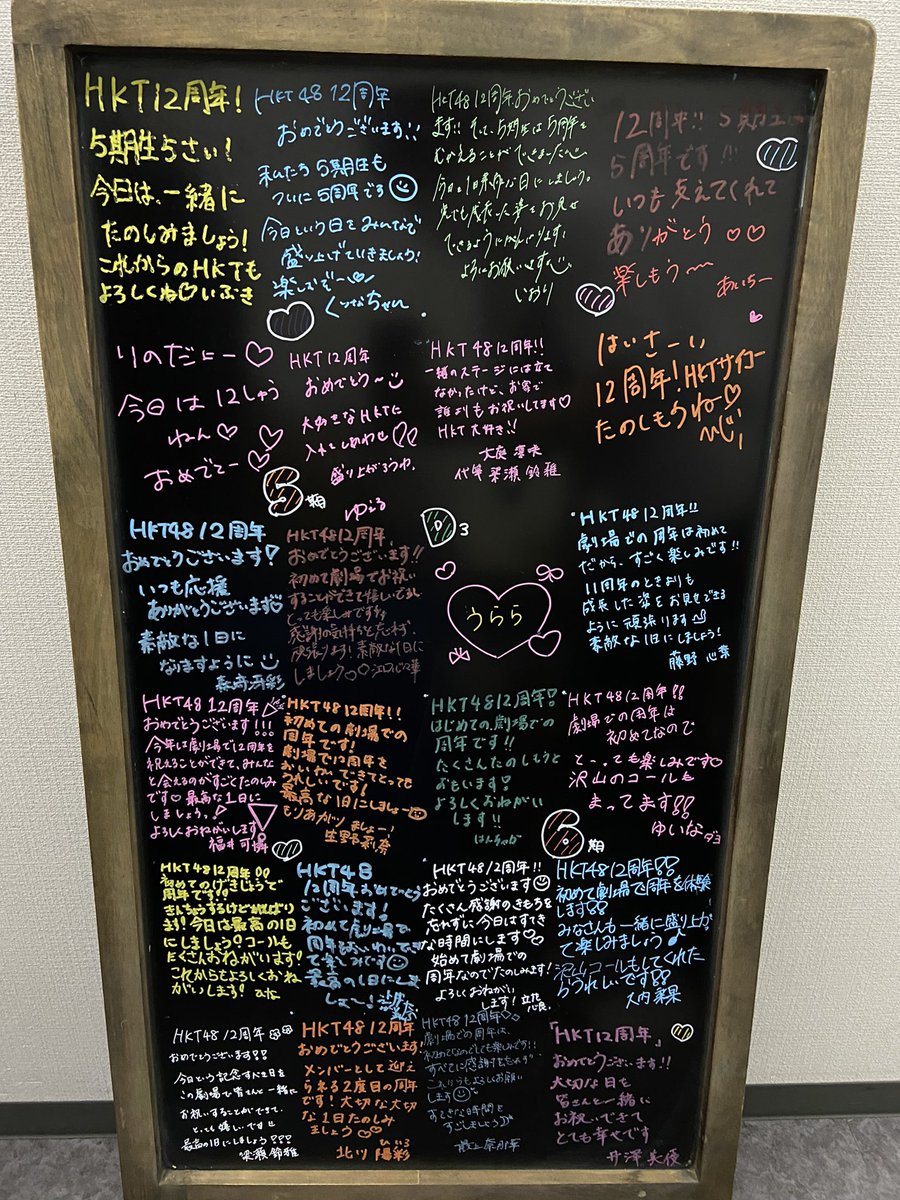 HKT12周年!
5期生5さい!
今日は、一緒に
たのしみましょう!
これからのHKTも
よろしくね♡いぶき
HKT48 12周年
おめでとうございます!!
私たち5期生も
ついに5周年です☺
今日という日をみんなで
盛り上げていきましょう!
楽しむぞー♡
くりなちゃん
HKT48 12周年おめでとうござい
ます!! そして、5期生は5周年を
むかえることができました〜
いおり
12周年!! 5期生は
5周年です!!!
いつも支えてくれて
ありがとう♡♡
楽しもう〜
あいちー
りのだにー♡
今日は12しゅう
ねん♡
おめでてー♡
HKT12周年
おめでとう〜☺
大好きなHKTに
入れてしあわせ♡
盛り上がろうね
ゆうる
HKT48 12周年!!
一緒のステージには立て
なかったけど、お家で
誰よりもお祝いしてます♡
HKT大好き!!
代筆 梁瀬 鈴雅
はいさーい
12周年!HKTサイコー
たのしもうね♡
5期
HKT48 12周年
おめでとうございます!
いつも応援
ありがとうございます♡
素敵な1日に
なりますように☺
森﨑冴彩
HKT48 12周年、
おめでとうございます!!
初めて劇場でお祝い
することができて嬉しいです
とっても楽しみです
感謝の気持ちを忘れず、
頑張ります!素敵な1日に
しましょう♡♡ 江口心々華
D3
うらら
HKT48 12周年!!
劇場での周年は初めて
だから、すごく楽しみです!!
11周年のときよりも
成長した姿をお見せできる
ように頑張ります
素敵な1日にしましょう!
藤野 心葉
HKT48 12周年
おめでとうございます!!!
今年は劇場で12周年を
祝えることができて、みんな
と会えるのがすごくたのしみ
です♡最高な1日に
しましょう。
よろしくおねがいします
福井可憐
HKT48 12周年!!
初めての劇場での
周年です!
劇場で12周年を
おいわいできてとっても
うれしいです!
最高な1日にしましょー
もりあがりましょー!
生野莉奈
HKT48 12周年!
はじめての劇場での
周年です!!
たくさんたのしもうと
おもいます!
よろしくおねがい
します!!
はんちゃが
HKT48 12周年!!
劇場での周年は
初めてなので
とーっても楽しみです♡
沢山のコールも
まってます!!
ゆいなダヨ
6期
HKT48 12周年!!
初めてのげきじょうで
周年です!!
きんちょうするけどがんばり
ます!今日は最高の1日
にしましょう!コールも
たくさんおねがいします!
これからもよろしくおね
がいします! ひな
HKT48
12周年おめでとう
ございます!
初めて劇場で
周年をおいわいでき
て楽しみです☺
最高の1日にしま
しょ〜!
HKT48 12周年!!
おめでとうございます☺
たくさん感謝のきもちを
忘れずに今日はすてき
な時間にします♡
始めて劇場での
周年なのでたのしみます!
よろしくおねがい
します! 立花心良
HKT48 12周年!!
初めて劇場で周年を体験
します!!
みなさんも一緒に盛り上が
って楽しみましょう♪
沢山コールもしてくれた
らうれしいです!!
大内梨果
HKT48 12周年
おめでとうございます!!!
今日という記念すべき日を
この劇場で皆さんと一緒に
お祝いすることができて、
とっても嬉しいです
最高の1日にしましょう!!!
梁瀬鈴雅
HKT48 12周年
おめでとうございます!
メンバーとして迎え
られる2度目の周年
です!大切な大切
な1日たのしみ
ましょう♡♡
ひいろ
北川 陽彩
HKT48 12周年♡
劇場での周年は、
初めてなのでとても楽しみです!!
すべてに感謝を忘れず
これからもよろしくお願い
します☺
すてきな時間を
すごしましょう♪
最上奈那華
「HKT12周年」
おめでとうございます!!
大切な日を
皆さんと一緒に
お祝いできて
とても幸せです
井澤美優